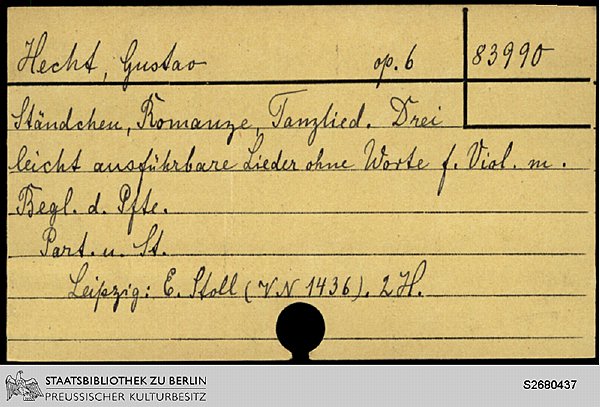 Hecht, Gustav op. 6 83990
Ständchen, Romanze, Tanzlied. Drei
leicht ausführbare Lieder ohne Worte f. Viol. m.
Begl. d. Pfte.
Part. u. St.
Leipzig: E. Stoll (VN 1436). 2 H.
STAATSBIBLIOTHEK ZU BERLIN
PREUSSISCHER KULTURBESITZ
S2680437